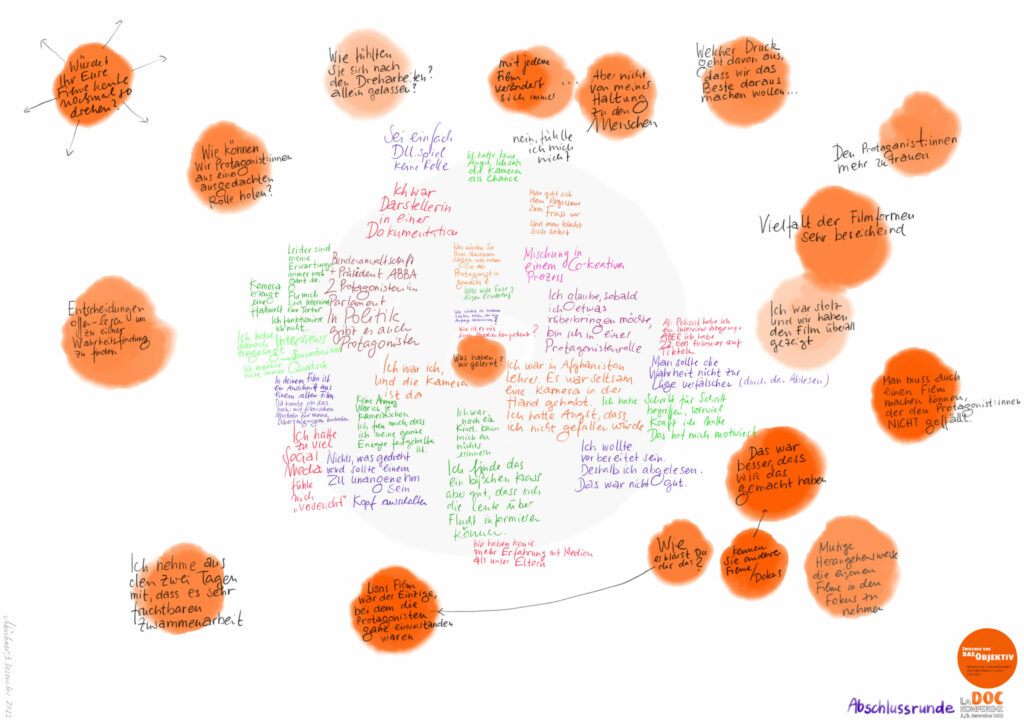 Würdet
Ihr Eure
Filme heute
nochmal so
drehen?
Wie fühlten
Sie sich nach
den Dreharbeiten?
allein gelassen?
mit jedem
Film
verändert
sich immer
...
Aber nicht
von meiner
Haltung
zu den
Menschen
Welcher Druck
geht davon aus,
dass wir das
Beste daraus
machen wollen...
Den Protaganist:innen
mehr zutrauen
Wie können
wir Protagonist:innen
aus einer
ausgedachten
Rolle holen?
Vielfalt der Filmformen
sehr bereichernd
Sei einfach
DU. spiel
keine Rolle
Ich hatte keine
Angst, ich sah
die Kamera
als Chance
nein, fühlte
ich mich
nicht
Ich war
Darstellerin
in einer
Dokumentation
Man gibt sich
dem Regisseur
zum Frass vor
und man bleibt
sich selbst
Mischung in
einem Co-kreativen
Prozess
Leider sind
meine
Erwartungen
immer noch
ganz da.
Für mich
sind Interviews
eine Tortur
Ich funktioniere
nicht.
Kamera
erzeugt
eine
Bundesanwaltschaft
+ Präsident ABBA
2 Protagonisten im
Parlament
In Politik
gibt es auch
Protagonisten
Was würden Sie
Protagonistin
Was war Eure?
eigene Erwartung
Ich glaube, sobald
ich etwas
rüberbringen möchte,
bin ich in einer
Protagonistenrolle
Ich war stolz
und wir haben
den Film überall
gezeigt
Entscheidungen
offen-legen um
zu einer
Wahrheitsfindung
zu finden
Ich habe
danach
Interviews
abgelehnt
Was haben
wir gelernt?
Als Polizist habe ich
ein Interview abgelehnt
ABER ich habe
22 000 Follower auf
TikTok
Man sollte die
Wahrheit nicht zur
Lüge verfälschen (durch das Ablesen)
Ich war ich,
und die Kamera
ist da
Ich war in Afghanistan
Lehrer. Es war seltsam
eine Kamera in der
Hand gehabt.
Ich hatte Angst, dass
ich nicht gefallen würde
Ich habe Schritt für Schritt
begriffen, wieviel
Kraft ich hatte
Das hat mich motiviert
Man muss auch
einen Film
machen können,
der den Protagonist:innen
NICHT gefällt.
In deinem Film ist
ein Ausschnitt aus
einem alten Film
Keine Ahnung
Ich freu mich, dass
ich meine ganze
Energie festgehalten
ist.
Ich war
noch ein
Kind, kann
mich an
nichts
erinnern
Ich hatte
zu viel
Social
Media
fühle
mich
"verseucht"
Nichts, was gedreht
wird sollte einem
ZU unangenehm
sein
Kopf ausschalten
Ich finde das
ein bisschen krass
aber gut, dass sich
die Leute über
Flucht informieren
können
Ich wollte
vorbereitet sein.
Deshalb ich abgelesen.
Das war nicht gut.
Das war
besser, dass
wir das
gemacht haben
Wir haben heute
mehr Erfahrung mit Medien
als unser Eltern
Wie
erklärst Du
dir das?
kennen
sie andere
Filme/
Dokus
Mutige
Herangehensweise
die eigenen
Filme in den
Fokus zu
nehmen
Ich nehme aus
den zwei Tagen
mit, dass es sehr
fruchtbaren
Zusammenarbeit
Lisas Film
war der Einzige,
bei dem die
Protagonisten
ganz einverstanden
waren
3. Dezember 2022
Zwischen uns
DAS OBJEKTIV
Abschlussrunde
LaDOC
KONFERENZ